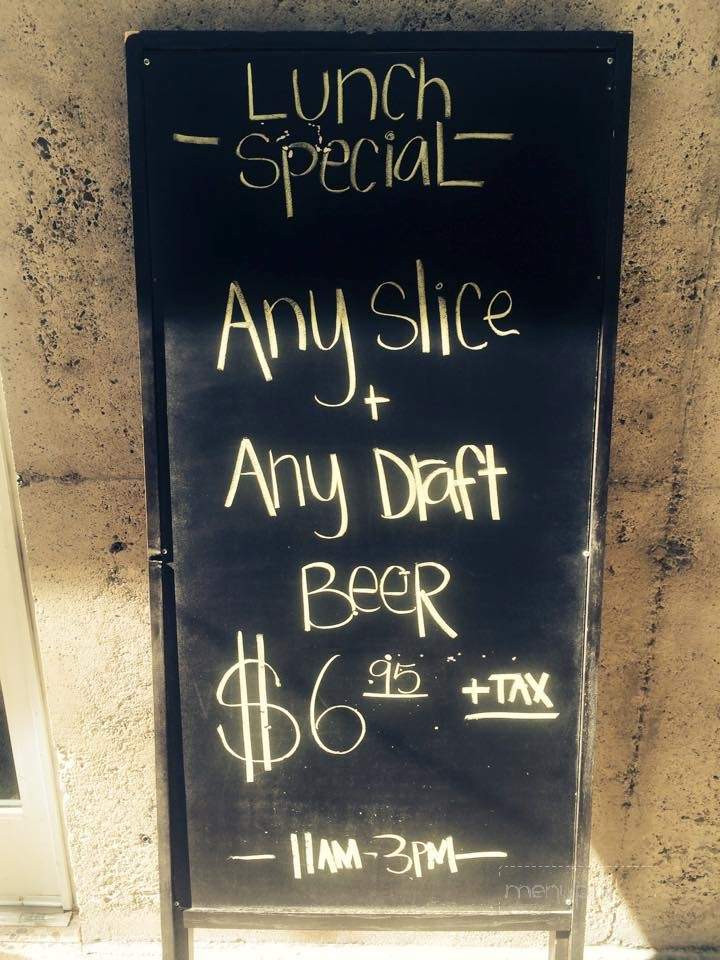 Lunch
- Special -
Any Slice
+
Any Draft
Beer
$6.95 + TAX
- 11AM - 3PM -